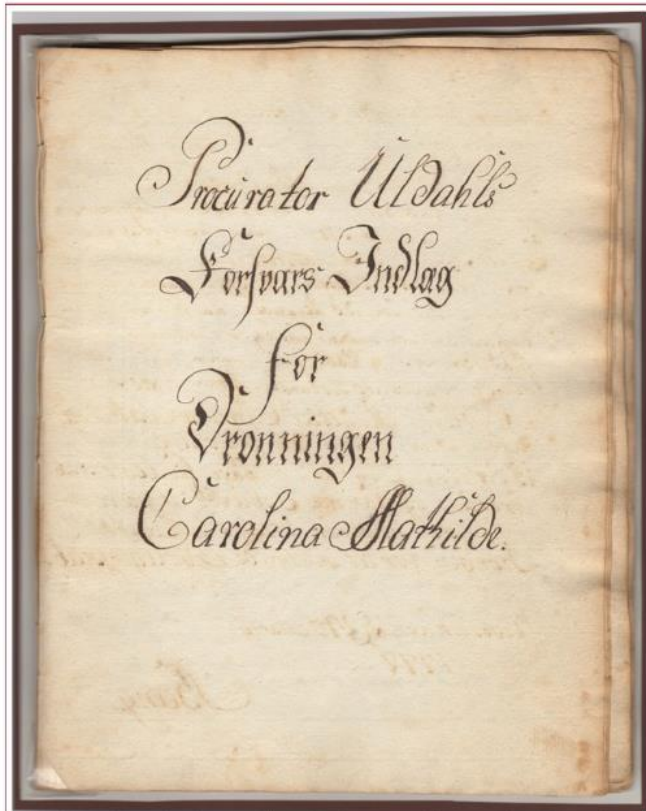 Procurator Uldahls
Forsvars Indlag
for
Dronningen
Carolina Mathilde.